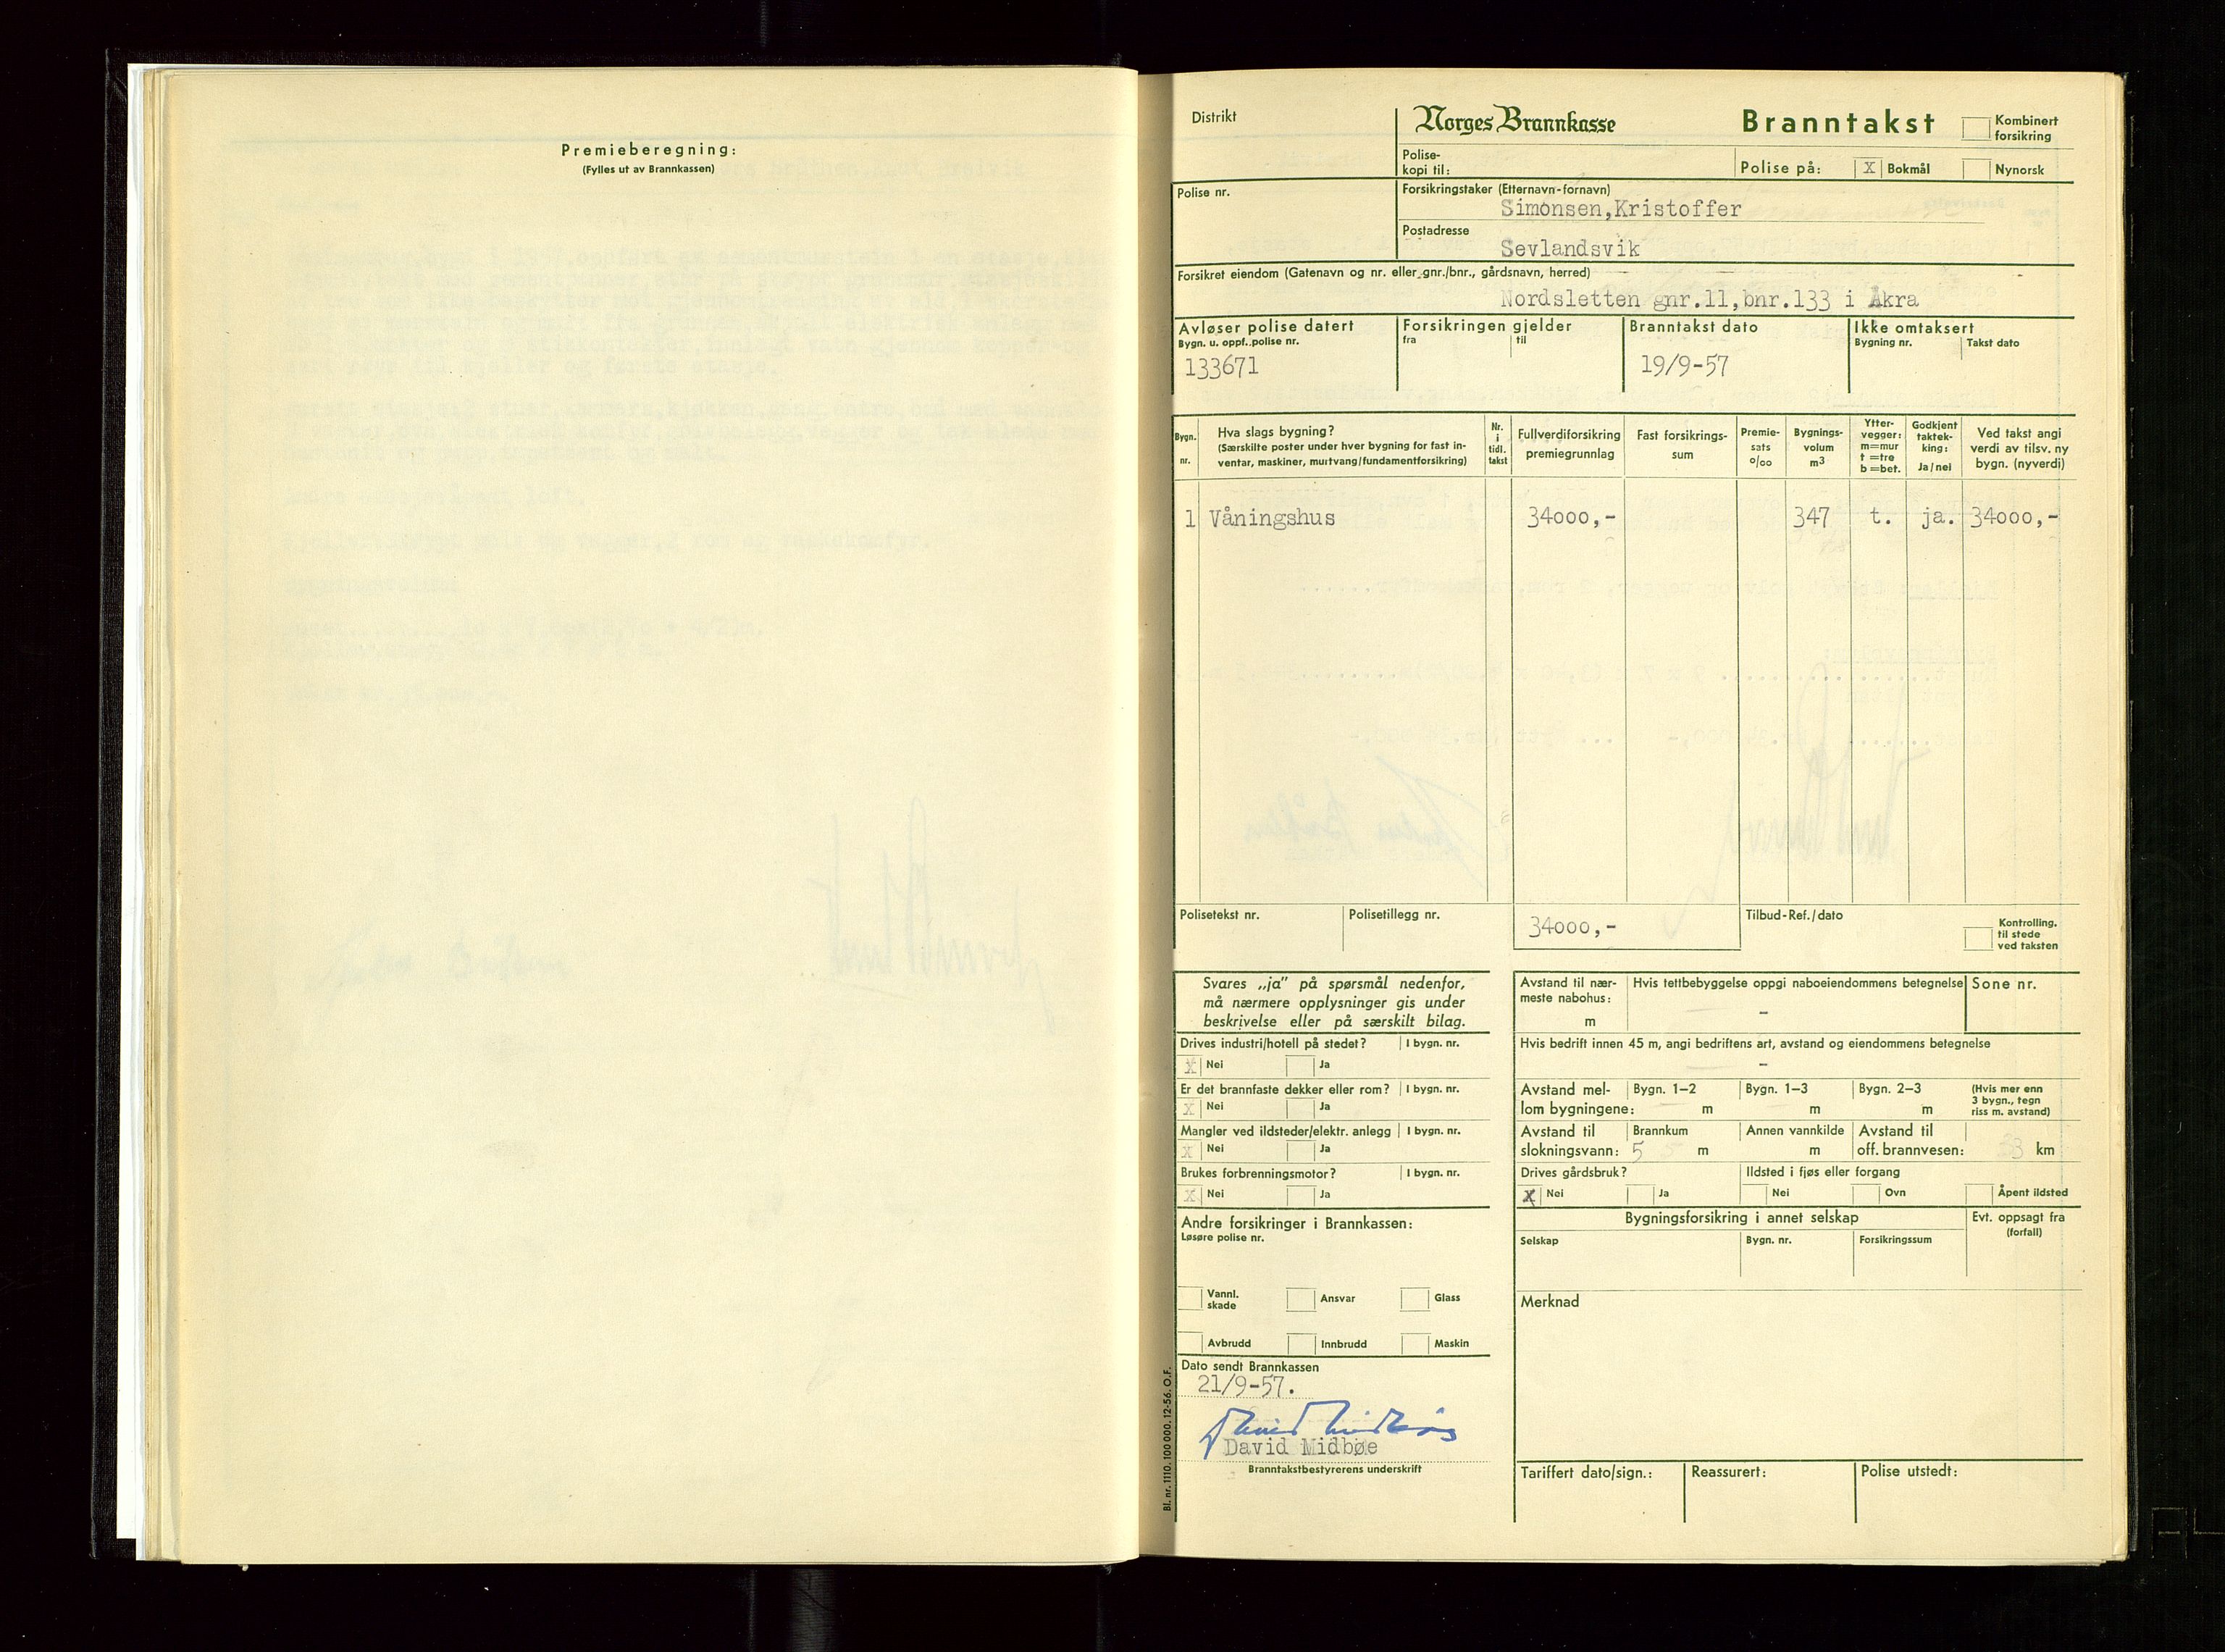 Premieberegning:
(Fylles ut av Brannkassen)
Distrikt
Norges Brannkasse
Branntakst
Kombinert
forsikring
Polise-
kopi til:
Polise på:
X Bokmål
Nynorsk
Polise nr.
Forsikringstaker (Etternavn-fornavn)
Simonsen,Kristoffer
Postadresse
Sevlandsvik
Forsikret eiendom (Gatenavn og nr. eller gnr./bnr., gårdsnavn, herred)
Nordsletten gnr.11,bnr.133 i Åkra
Avløser polise datert
Bygn. u. oppf..polise nr.
133671
Forsikringen gjelder
fra til
Branntakst dato
19/9-57
Ikke omtaksert
Bygning nr. Takst dato
Bygn.
nr.
Hva slags bygning?
(Særskilte poster under hver bygning for fast in-
ventar, maskiner, murtvang/fundamentforsikring)
Nr.
i
tidl.
takst
Fullverdiforsikring
premiegrunnlag
Fast forsikrings-
sum
Premie-
sats
o/oo
Bygnings-
volum
m3
Ytter-
vegger:
m=mur
t =tre
b =bet.
Godkjent
taktek-
king:
Ja/nei
Ved takst angi
verdi av tilsv. ny
bygn. (nyverdi)
1 Våningshus 34000,- 347 t. ja. 34000,-
Polisetekst nr.
Polisetillegg nr.
34000,-
Tilbud-Ref./dato
Kontrolling.
til stede
ved taksten
Svares „ja" på spørsmål nedenfor,
må nærmere opplysninger gis under
beskrivelse eller på særskilt bilag.
Drives industri/hotell på stedet? I bygn. nr.
X Nei Ja
Er det brannfaste dekker eller rom? I bygn. nr.
X Nei Ja
Mangler ved ildsteder/elektr. anlegg I bygn. nr.
X Nei Ja
Brukes forbrenningsmotor? I bygn. nr.
X Nei Ja
Andre forsikringer i Brannkassen:
Løsøre polise nr.
Vannl.
skade
Ansvar
Glass
Avbrudd
Innbrudd
Maskin
Dato sendt Brannkassen
21/9-57.
David Midbøe
David Midbøe
Branntakstbestyrerens underskrift
Bl. nr. 1110. 100 000. 12-56. O.F.
Avstand til nær-
meste nabohus:
m
Hvis tettbebyggelse oppgi naboeiendommens betegnelse
-
Sone nr.
Hvis bedrift innen 45 m, angi bedriftens art, avstand og eiendommens betegnelse
-
Avstand mel-
lom bygningene:
Bygn. 1–2
m
Bygn. 1–3
m
Bygn. 2–3
m
(Hvis mer enn
3 bygn., tegn
riss m. avstand)
Avstand til
slokningsvann:
Brannkum
5 m
Annen vannkilde
m
Avstand til
off. brannvesen:
km
Drives gårdsbruk?
X Nei Ja
Ildsted i fjøs eller forgang
Nei Ovn Åpent ildsted
Bygningsforsikring i annet selskap
Selskap
Bygn. nr.
Forsikringssum
Evt. oppsagt fra
(forfall)
Merknad
Tariffert dato/sign.:
Reassurert:
Polise utstedt: